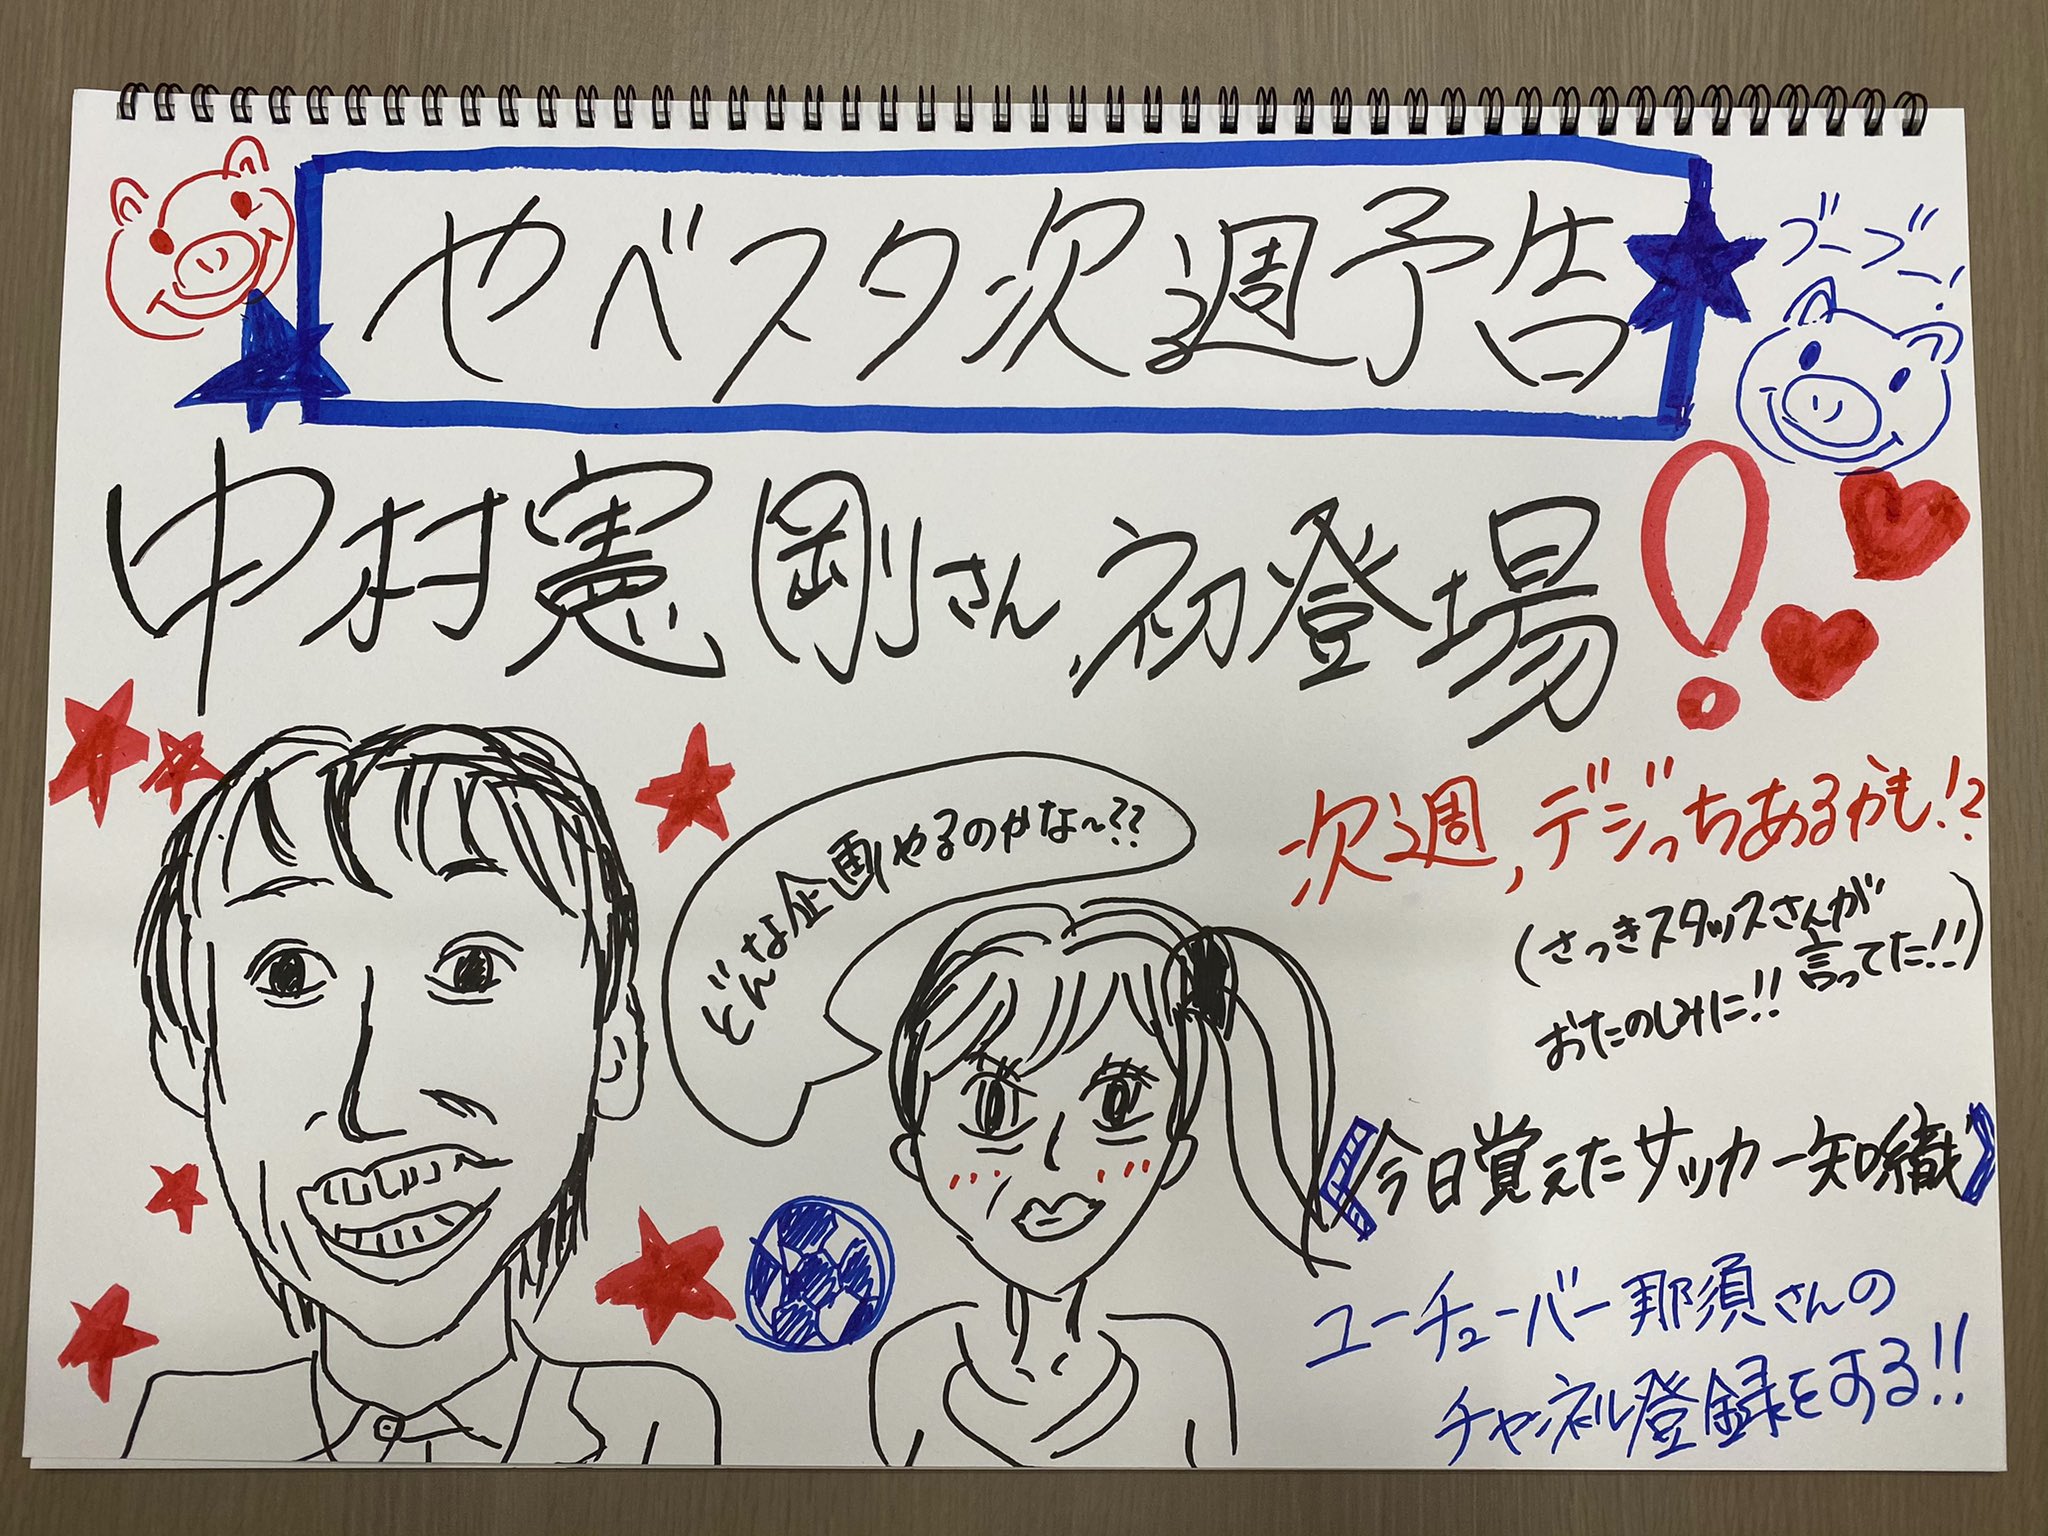 やべスタ次週予告
ブーブー!
中村憲剛さん,初登場!
どんな企画やるのかな〜??
次週,デジっちあるかも!?
(さっきスタッフさんが
言ってた!!)
おたのしみに!!
《今日覚えたサッカー知識》
ユーチューバー那須さんの
チャンネル登録をする!!